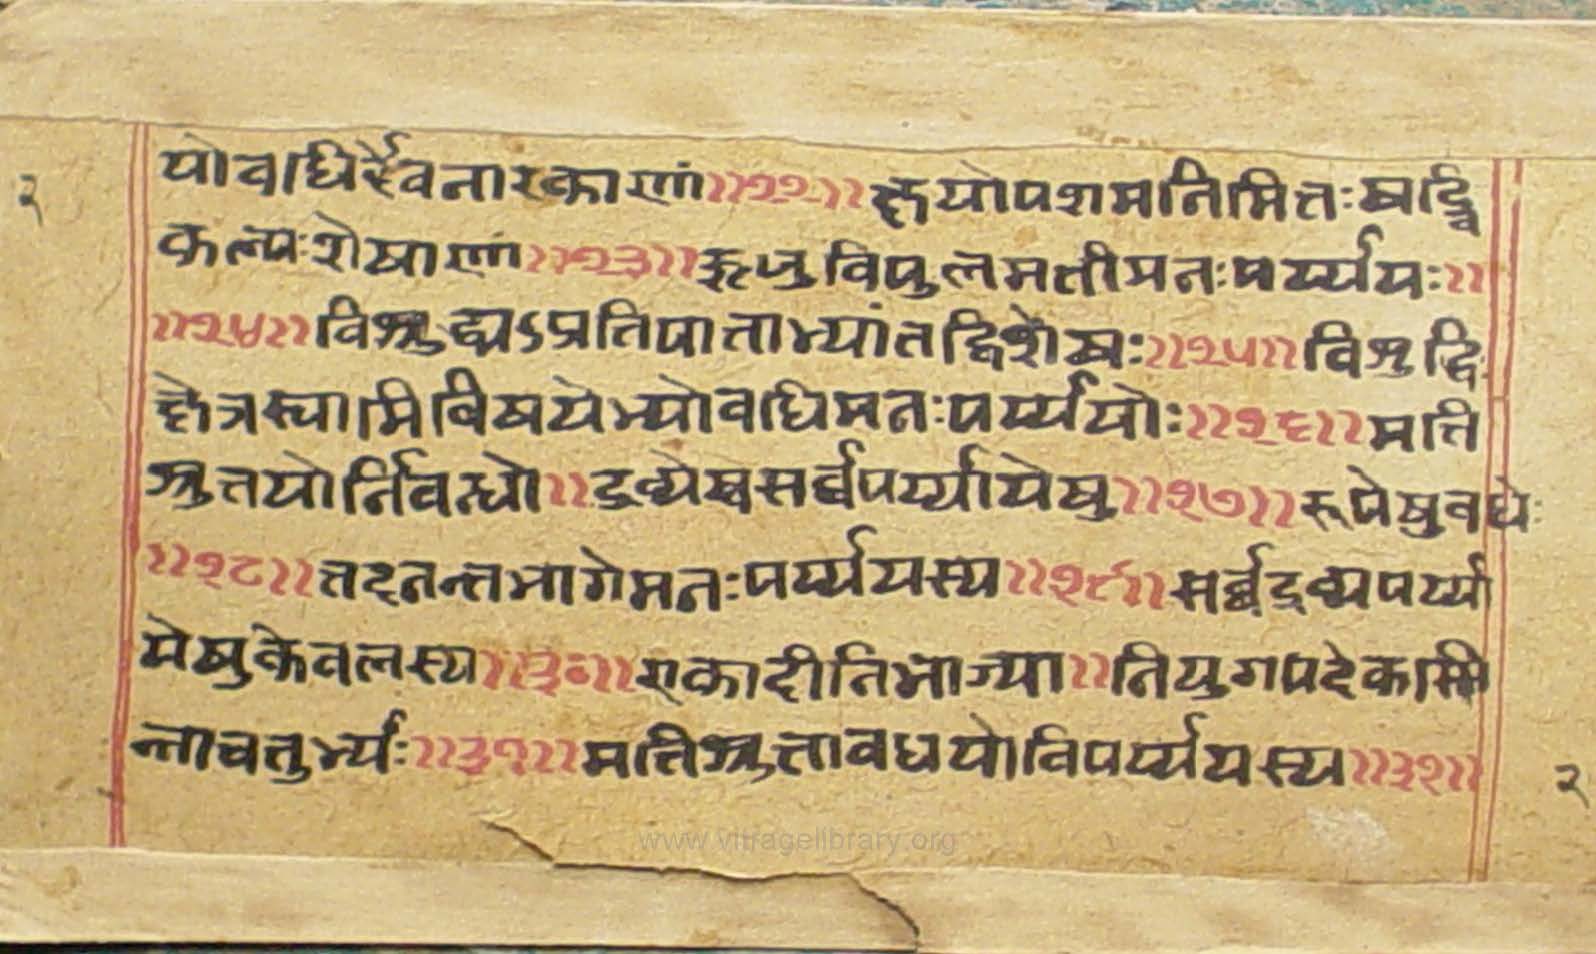 २
योवधिर्द्देवनारकाणां॥२२॥क्षयोपशमनिमित्तः षड्वि
कल्पः शेषाणां॥२३॥ऋजुविपुलमतीमनः पर्य्ययः॥
॥२४॥विशुद्ध्यऽप्रतिपाताभ्यांतद्विशेषः॥२५॥विशुद्धि
क्षेत्रस्वामिविषयेभ्योवधिमनः पर्य्ययोः॥२६॥मति
श्रुतयोर्निवन्धो॥द्रव्येष्वसर्व्वपर्य्यायेषु॥२७॥रूपेषुवधेः
॥२८॥तदनन्तभागेमनः पर्य्ययस्य॥२९॥सर्व्वद्रव्यपर्य्या
येषुकेवलस्य॥३०॥एकादीनिभाज्या॥नियुगपदेकस्मि
न्नाचतुर्भ्यः॥३१॥मतिश्रुतावधयोविपर्य्ययस्य॥३२॥
२
www.vitragelibrary.org